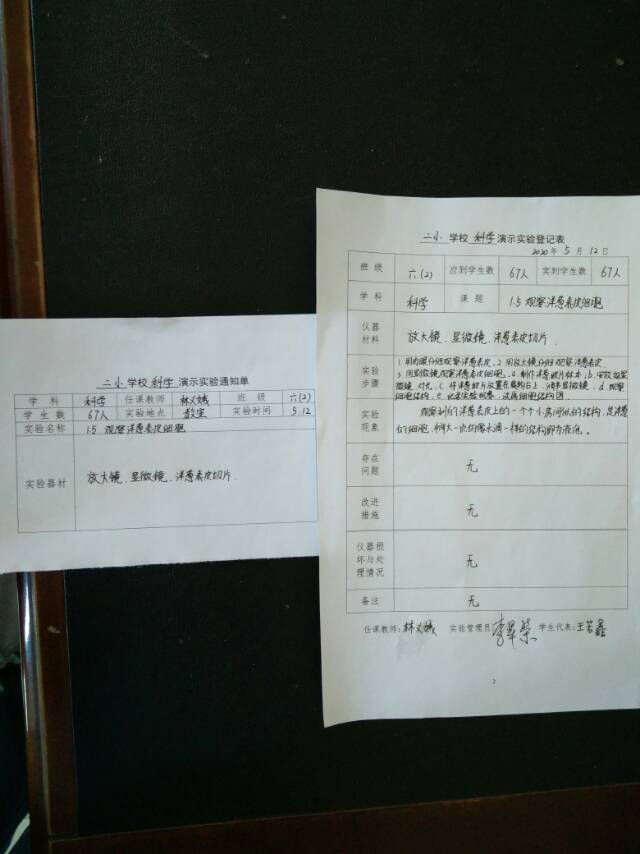 二小 学校 科学 演示实验通知单
学 科 科学 任课教师 林义娥 班 级 六(2)
学 生 数 67人 实验地点 教室 实验时间 5.12
实验名称 1.5 观察洋葱表皮细胞
实验器材 放大镜、显微镜、洋葱表皮切片.
二小 学校 科学 演示实验登记表
2020 年 5 月 12 日
班 级 六(2) 应到学生数 67人 实到学生数 67人
学 科 科学 课 题 1.5 观察洋葱表皮细胞
仪器
材料 放大镜、显微镜、洋葱表皮切片.
实验
步骤
1. 用肉眼仔细观察洋葱表皮、2. 用放大镜仔细观察洋葱表皮
3. 用显微镜观察洋葱表皮细胞、a. 制作洋葱玻片标本、b.
微镜、对光、c. 将洋葱玻片放置在载物台上、调准显微镜、d. 观察
细胞结构、e. 记录实验现象、
实验
现象
观察到的洋葱表皮上的一个个小房间似的结构,是洋葱
的细胞,
存在
问题 无
改进
措施 无
仪器损
坏与处
理情况 无
备注 无
任课教师: 林义娥 实验管理员: 学生代表: 王若鑫
2